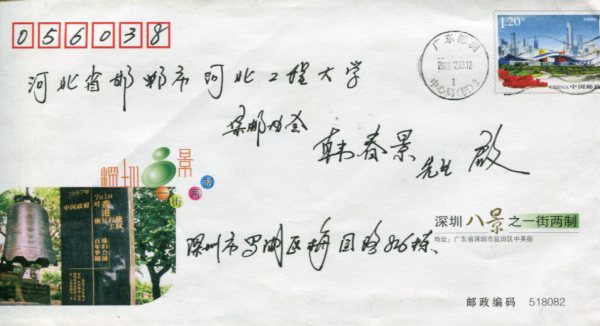 056038
1.20元
CHINA 中国邮政
广东深圳
1
河北省邯郸市河北工程大学
集邮协会
韩春景 先生 启
深圳八景
一街两制
1997年7月1日
中国政府
深圳市罗湖区梅园路
深圳八景之一街两制
地址:广东省深圳市盐田区中英街
邮政编码 518082